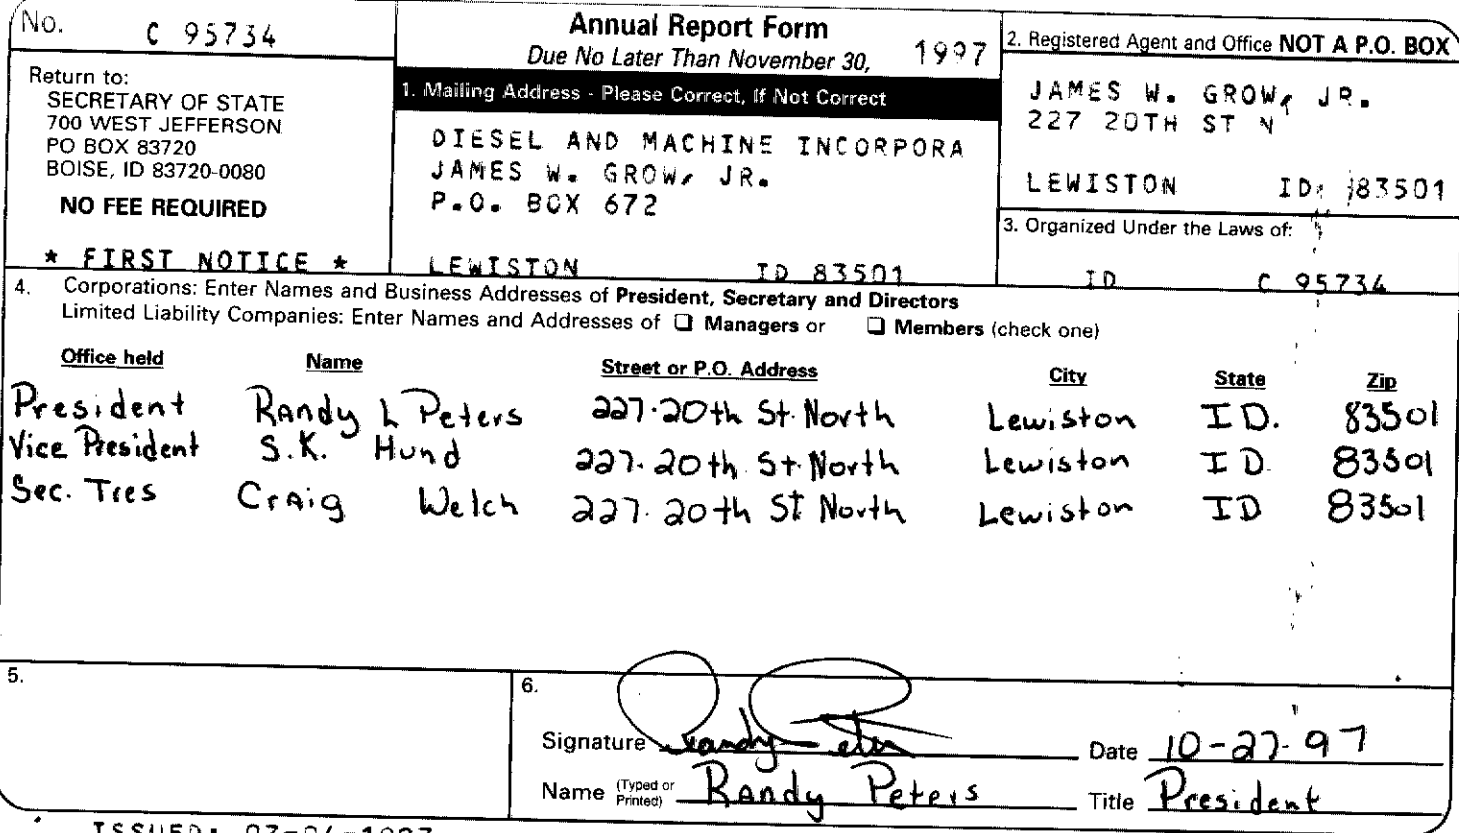 No. C 95734
Annual Report Form
Due No Later Than November 30, 1997
Return to:
SECRETARY OF STATE
700 WEST JEFFERSON
PO BOX 83720
BOISE, ID 83720-0080
NO FEE REQUIRED
* FIRST NOTICE *
1. Mailing Address - Please Correct, If Not Correct
DIESEL AND MACHINE INCORPORA
JAMES W. GROW, JR.
P.O. BOX 672
LEWISTON ID 83501
2. Registered Agent and Office NOT A P.O. BOX
JAMES W. GROW, JR.
227 20TH ST N
LEWISTON ID 83501
3. Organized Under the Laws of:
ID C 95734
4. Corporations: Enter Names and Business Addresses of President, Secretary and Directors
Limited Liability Companies: Enter Names and Addresses of ❑ Managers or ❑ Members (check one)
Office held Name Street or P.O. Address City State Zip
President Randy L Peters 227·20th St. North Lewiston ID. 83501
Vice President S.K. Hund 227. 20th St North Lewiston ID. 83501
Sec. Tres Craig Welch 227. 20th St North Lewiston ID 83501
5.
6.
Signature Randy Peters Date 10-27-97
Name (Typed or Printed) Randy Peters Title President
ISSUED: